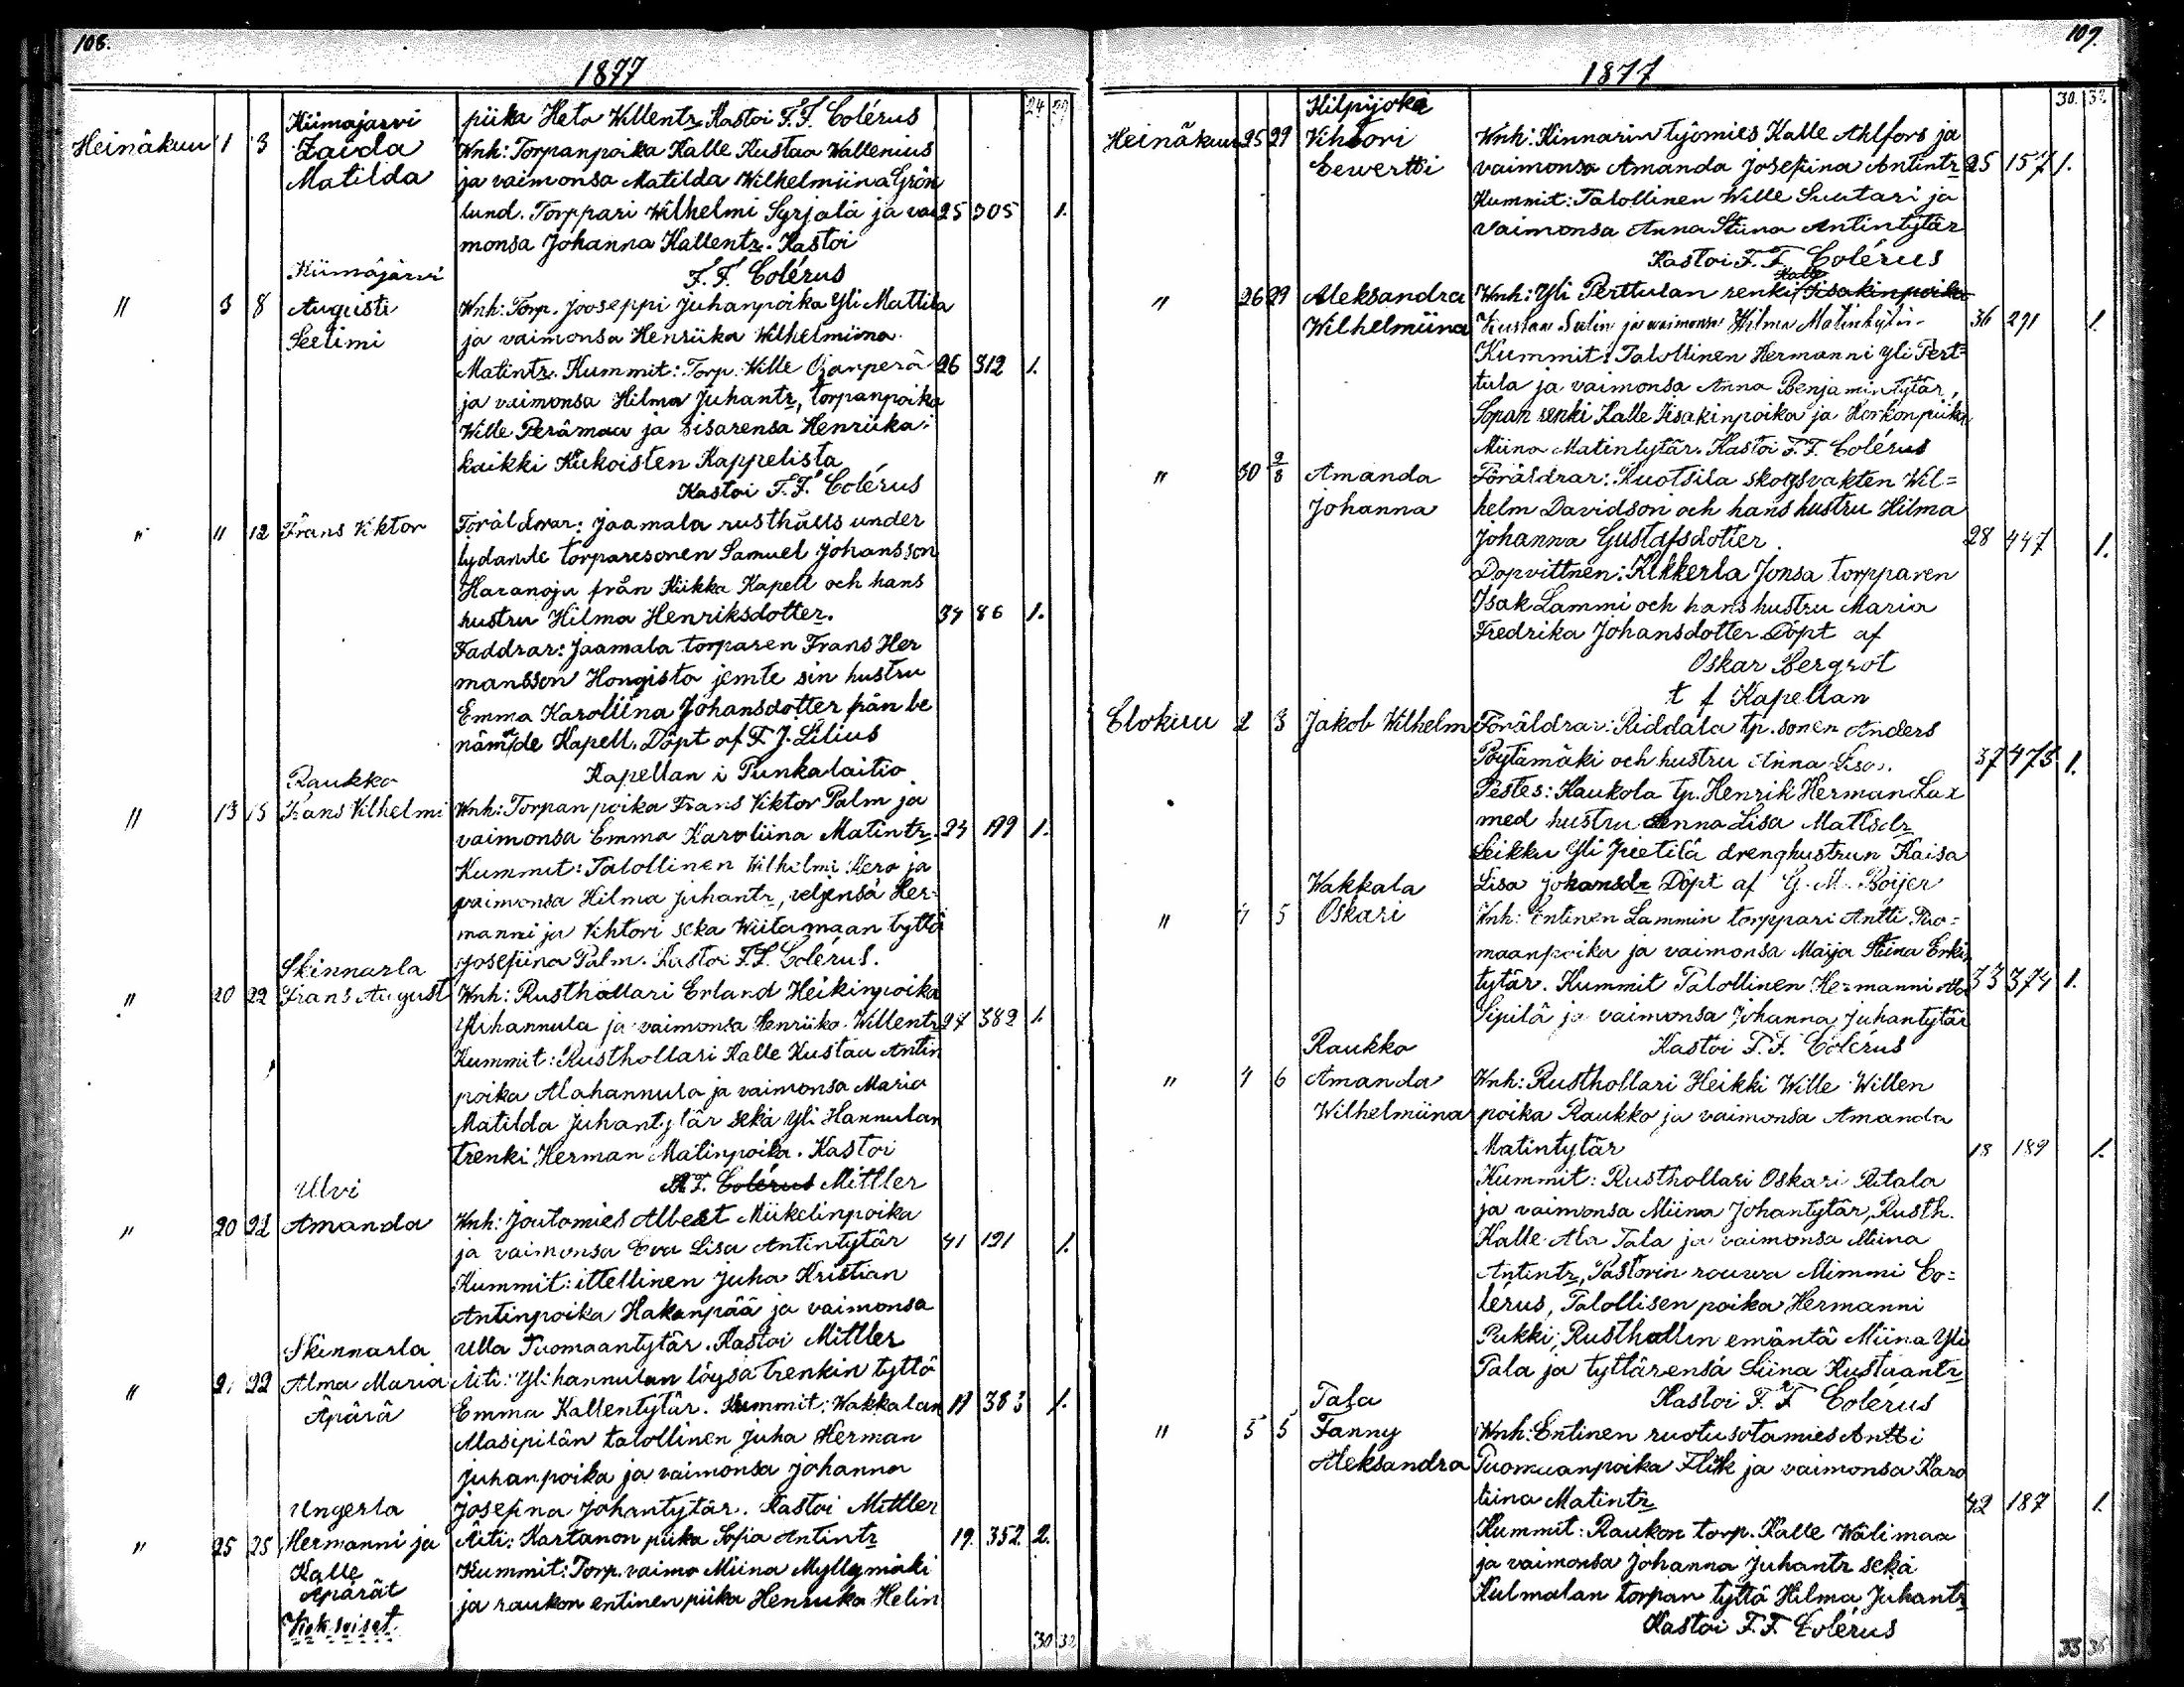 108.
1877
24 29
Kiimajärvi piika Heta Willentr Kastoi F.F. Colérus
Heinäkuu 1 3 Zaida Wnh: Torpanpoika Kalle Kustaa Wallenius
Matilda ja vaimonsa Matilda Wilhelmiina Grön
lund. Torppari Wilhelmi Syrjälä ja vai 25 305 1.
monsa Johanna Kallentr. Kastoi
Kiimajärvi F.F. Colérus
" 3 8 Augusti Wnh: Torp. Jooseppi Juhanpoika Yli Mattila
Seelimi ja vaimonsa Henriika Wilhelmiina
Matintr. Kummit: Torp. Wille Ojanperä 26 312 1.
ja vaimonsa Hilma Juhantr, torpanpoika
Wille Perämaa ja sisarensa Henriika:
kaikki Kiikoisten Kappelista
Kastoi F.F. Colérus
" 11 12 Frans Viktor Föräldrar: Jaamala rusthålls under
lydande torparesonen Samuel Johansson
Haranoja från Kiikka Kapell och hans
hustru Hilma Henriksdotter. 34 86 1.
Faddrar: Jaamala torparen Frans Her
mansson Hongisto jemte sin hustru
Emma Karoliina Johansdotter från be
nämnde Kapell. Döpt af F.J. Lilius
Raukko Kapellan i Punkalaitio
" 13 15 Frans Vilhelmi Wnh: Torpan poika Frans Viktor Palm ja
vaimonsa Emma Karoliina Matintr. 23 199 1.
Kummit: Talollinen Wilhelmi Kero ja
vaimonsa Hilma Juhantr, veljensä Her-
manni ja Vihtori sekä Wiitamaan tyttö
Skinnarla Josefiina Palm. Kastoi F.F. Colérus.
" 20 22 Frans August Wnh: Rusthollari Erland Heikinpoika
Ylihannula ja vaimonsa Henriika Willentr 27 382 1.
Kummit: Rusthollari Kalle Kustaa Antin
poika Alahannula ja vaimonsa Maria
Matilda Juhantytär sekä Yli Hannulan
trenki Herman Matinpoika. Kastoi
Ulvi F. Colérus Mittler
" 20 22 Amanda Wnh: Joutomies Albert Mikelinpoika
ja vaimonsa Eva Lisa Antintytär 41 191 1.
Kummit: ittellinen Juha Kristian
Antinpoika Hakanpää ja vaimonsa
Skinnarla Ulla Tuomaantytär. Kastoi Mittler
" 21 22 Alma Maria Äiti: Ylihannulan löysä trenkin tyttö
Äpärä Emma Kallentytär. Kummit: Wakkalan 19 383 1.
Alasipilän talollinen Juha Herman
Juhanpoika ja vaimonsa Johanna
Ungerla Josefina Johantytär. Kastoi Mittler
" 25 25 Hermanni ja Äiti: Kartanon piika Sofia Antintr 19. 352. 2.
Kalle Kummit: Torp. vaimo Miina Myllymäki
Äpärät ja raukon entinen piika Henriika Helin
Kaksoiset.
30 32
109.
1877
30. 32
Kilpijoki
Heinäkuu 25 29 Vihtori Wnh: Kinnarin työmies Kalle Ahlfors ja
Eewertti vaimonsa Amanda Josefiina Antintr 25 157 1.
Kummit: Talollinen Wille Suutari ja
vaimonsa Anna Stiina Antintytär
Kastoi F.F. Colérus
Kalle
" 26 29 Aleksandra Wnh: Yli Perttulan renki Iisakinpoika
Wilhelmiina Kustaa Selin ja vaimonsa Hilma Matintytär 36 291 1.
Kummit: Talollinen Hermanni Yli Pert=
tula ja vaimonsa Anna Benjamintytär,
Sopan renki Kalle Iisakinpoika ja Horkon piika
Miina Matintytär. Kastoi F.F. Colérus
" 30 2/8 Amanda Föräldrar: Ruotsila skogsvakten Wil=
Johanna helm Davidson och hans hustru Hilma
Johanna Gustafsdotter. 28 447 1.
Dopvittnen: Kikkerla Jonsa torpparen
Isak Lammi och hans hustru Maria
Fredrika Johansdotter. Döpt af
Oskar Bergrot
t f Kapellan
Elokuu 2 3 Jakob Wilhelm Föräldrar: Riddala tp. sonen Anders
Pöytämäki och hustru Anna Lisa. 37 473 1.
Testes: Kaukola tp. Henrik Herman Lax
med hustru Anna Lisa Mattsdr
Leikku Yli Pietilä drenghustrun Kaisa
Wakkala Lisa Johansdr Döpt af G. M. Boijer
" 4 5 Oskari Wnh: Entinen Lammin torppari Antti Tuo=
maanpoika ja vaimonsa Maija Stiina Erkin
tytär. Kummit Talollinen Hermanni 33 374 1.
Sipilä ja vaimonsa Johanna Juhantytär
Raukko Kastoi F.F. Colérus
" 4 6 Amanda Wnh: Rusthollari Heikki Wille Willen
Wilhelmiina poika Raukko ja vaimonsa Amanda
Matintytär 18 189 1.
Kummit: Rusthollari Oskari Ritala
ja vaimonsa Miina Johantytär, Rusth.
Kalle Ala Tala ja vaimonsa Miina
Antintr, Pastorin rouwa Mimmi Co=
lérus, Talollisen poika Hermanni
Pukki, Rusthollin emäntä Miina Yli
Tala ja tyttärensä Liina Kustaantr
Tala Kastoi F.F. Colérus
" 5 5 Fanny Wnh: Entinen ruotusotamies Antti
Aleksandra Tuomaanpoika Flik ja vaimonsa Karo
liina Matintr 42 187 1.
Kummit: Raukon torp. Kalle Wälimaa
ja vaimonsa Johanna Juhantr sekä
Kulmalan torpan tyttö Hilma Juhantr
Kastoi F.F. Colérus
33 35